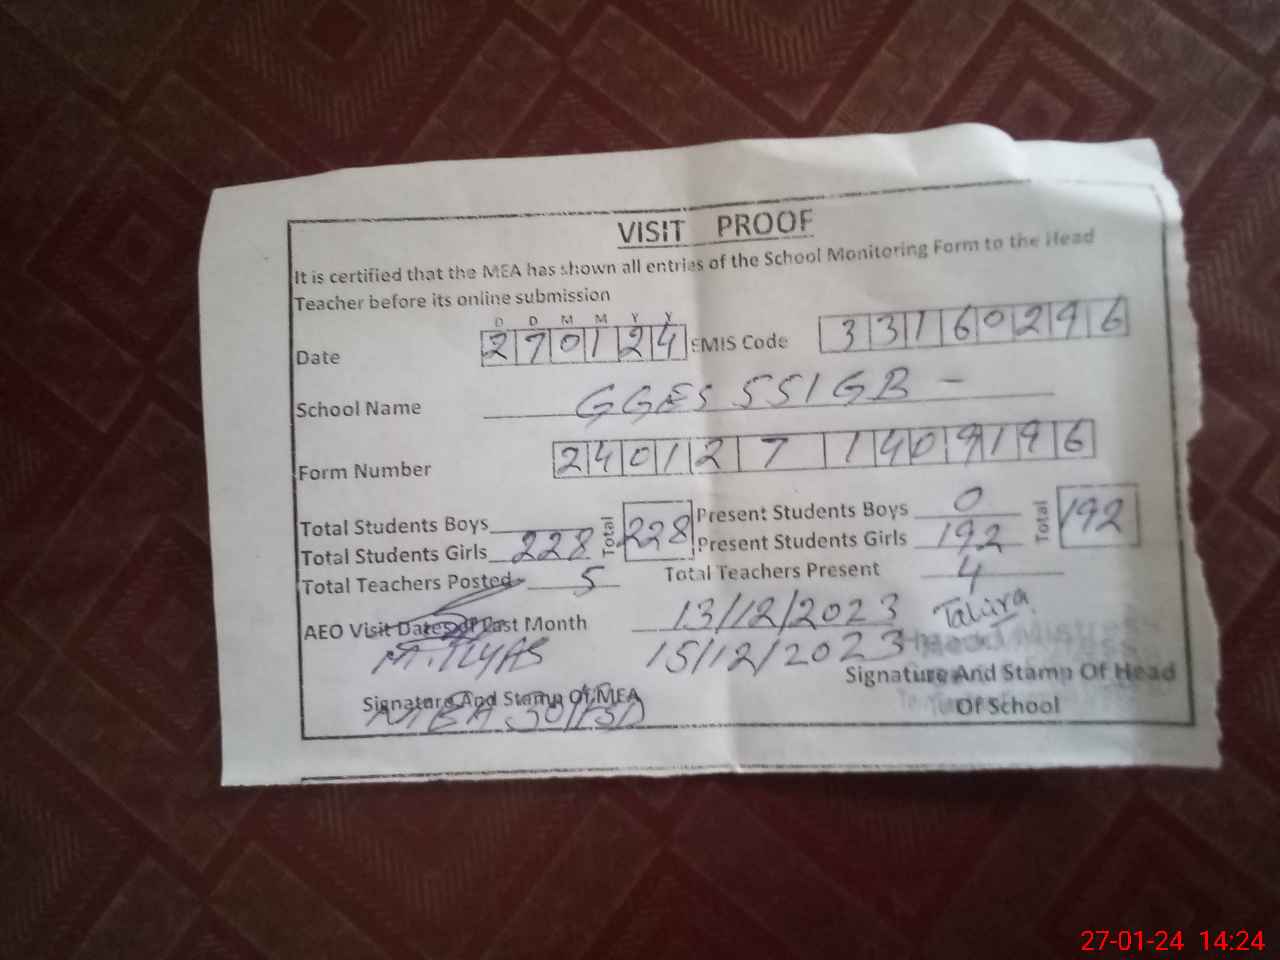 VISIT PROOF
It is certified that the MEA has shown all entries of the School Monitoring Form to the Head
Teacher before its online submission
D D M M Y Y
Date 270124 EMIS Code 33160296
School Name GGES 551 GB -
Form Number 2401271409196
Total Students Boys Total 228 Present Students Boys 0 Total 192
Total Students Girls 228 Present Students Girls 192
Total Teachers Posted 5 Total Teachers Present 4
AEO Visit Dates of Past Month 13/12/2023 Tahira
M. ILYAS 15/12/2023 Head Mistress
Signature And Stamp Of MEA Signature And Stamp Of Head
MEA Of School
27-01-24 14:24